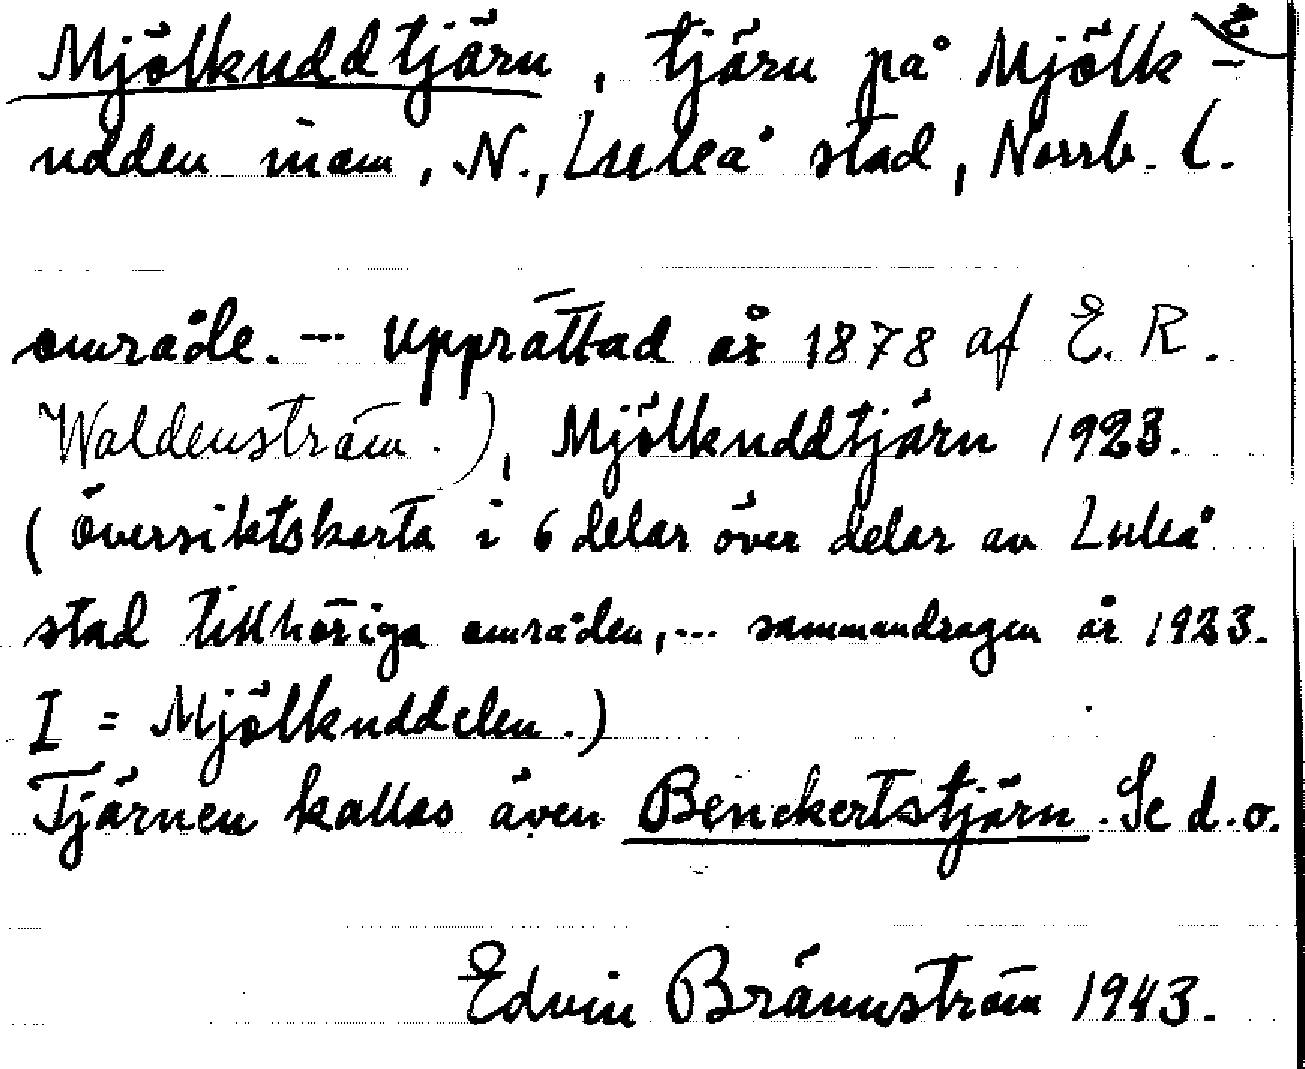 Mjölkuddtjärn, tjärn på Mjölk-
udden inom, N., Luleå stad, Norrb. l.
område. --- Upprättad år 1878 af E. R.
Waldenström.), Mjölkuddtjärn 1923.
(Översiktskarta i 6 delar över delar av Luleå
stad tillhöriga områden, --- sammandragen år 1923.
I = Mjölkuddelen.)
Tjärnen kallas även Benckertstjärn. Se d.o.
Edvin Brännström 1943.